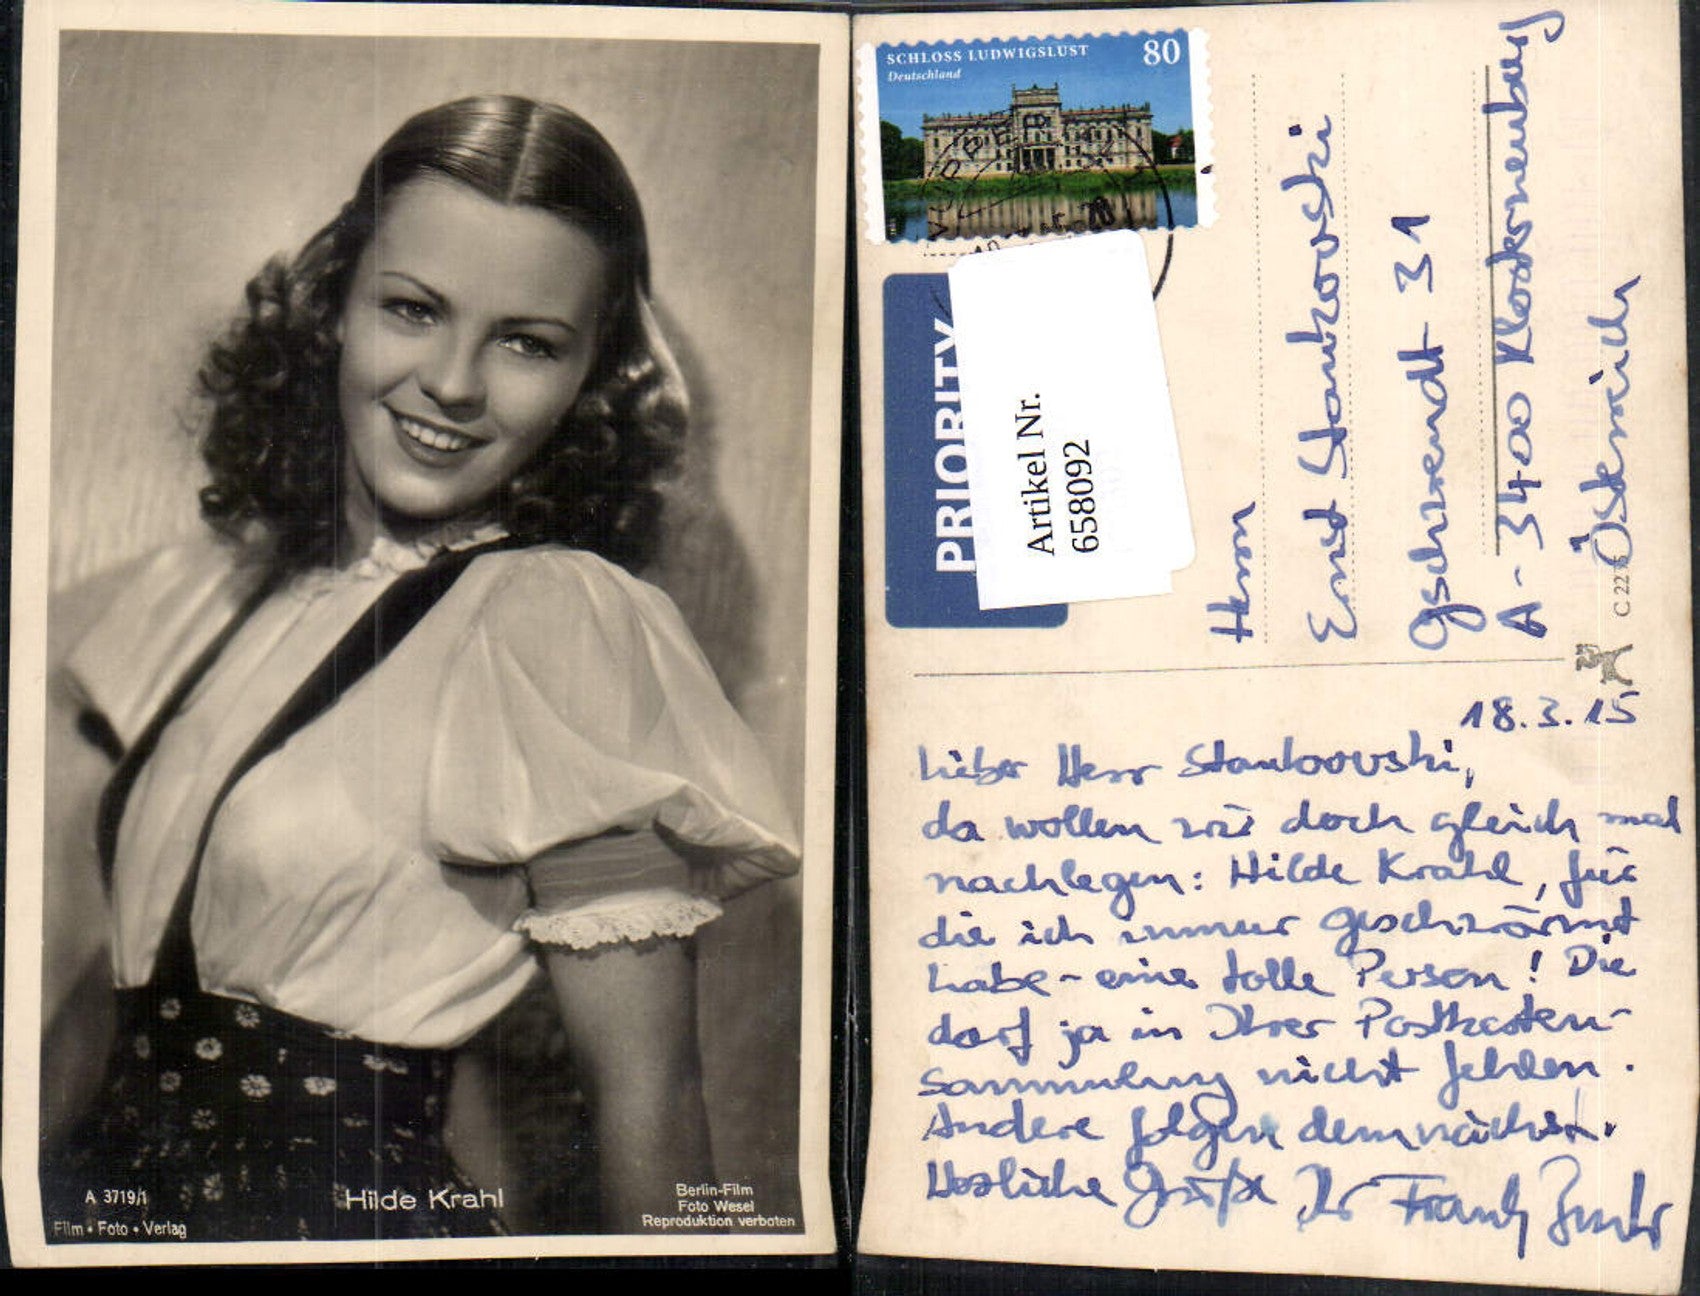 A 3719/1
Film • Foto • Verlag
Hilde Krahl
Berlin-Film
Foto Wesel
Reproduktion verboten
SCHLOSS LUDWIGSLUST
Deutschland
80
PRIORITY
Artikel Nr.
6588092
Herrn
Ernst Stankovski
Gschwendt 31
A-3400 Klosterneuburg
Österreich
C 22
18.3.15
Lieber Herr Stankovski,
da wollen wir doch gleich mal
nachlegen: Hilde Krahl, für
die ich immer geschwärmt
habe - eine tolle Person! Die
darf ja in Ihrer Postkarten-
sammlung nicht fehlen.
Andere folgen demnächst.
Herzliche Grüße Ihr Frank